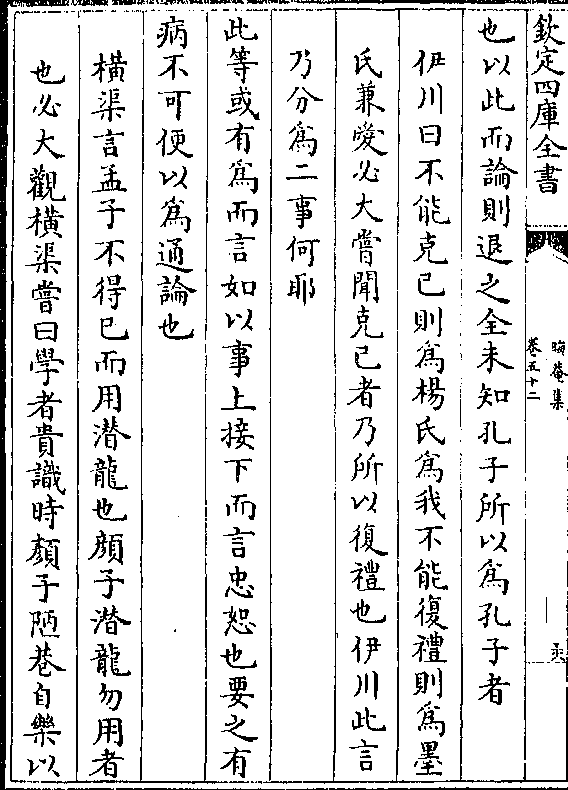 欽定四庫全書
晦菴集
卷五十二
也以此而論則退之全未知孔子所以為孔子者
伊川曰不能克己則為楊氏為我不能復禮則為墨
氏兼愛必大嘗聞克己者乃所以復禮也伊川此言
乃分為二事何耶
此等或有為而言如以事上接下而言忠恕也要之有
病不可便以為通論也
橫渠言孟子不得已而用潛龍也顔子潛龍勿用者
也必大觀橫渠嘗曰學者貴識時顔子陋巷自樂以